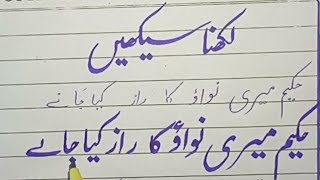 لکھنا سیکھیں
حکیم میری نواؤ کا راز کیا جانے
حکیم میری نواؤ کا راز کیا جاے